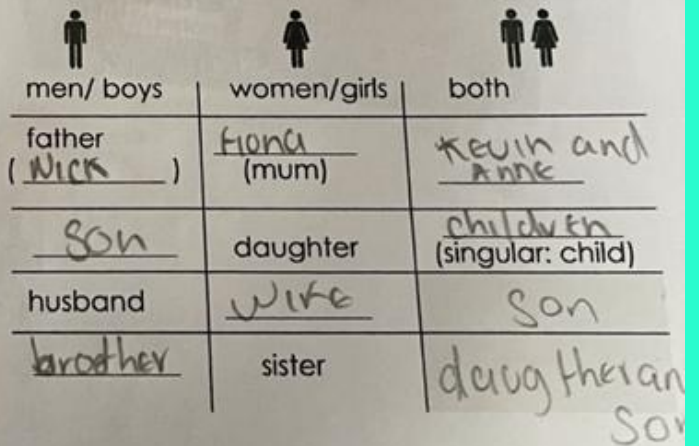 men/ boys women/girls both
father Fiona Kevin and
( Nick ) (mum) Anne
son daughter children
(singular: child)
husband wife son
broether sister daugtheran
son